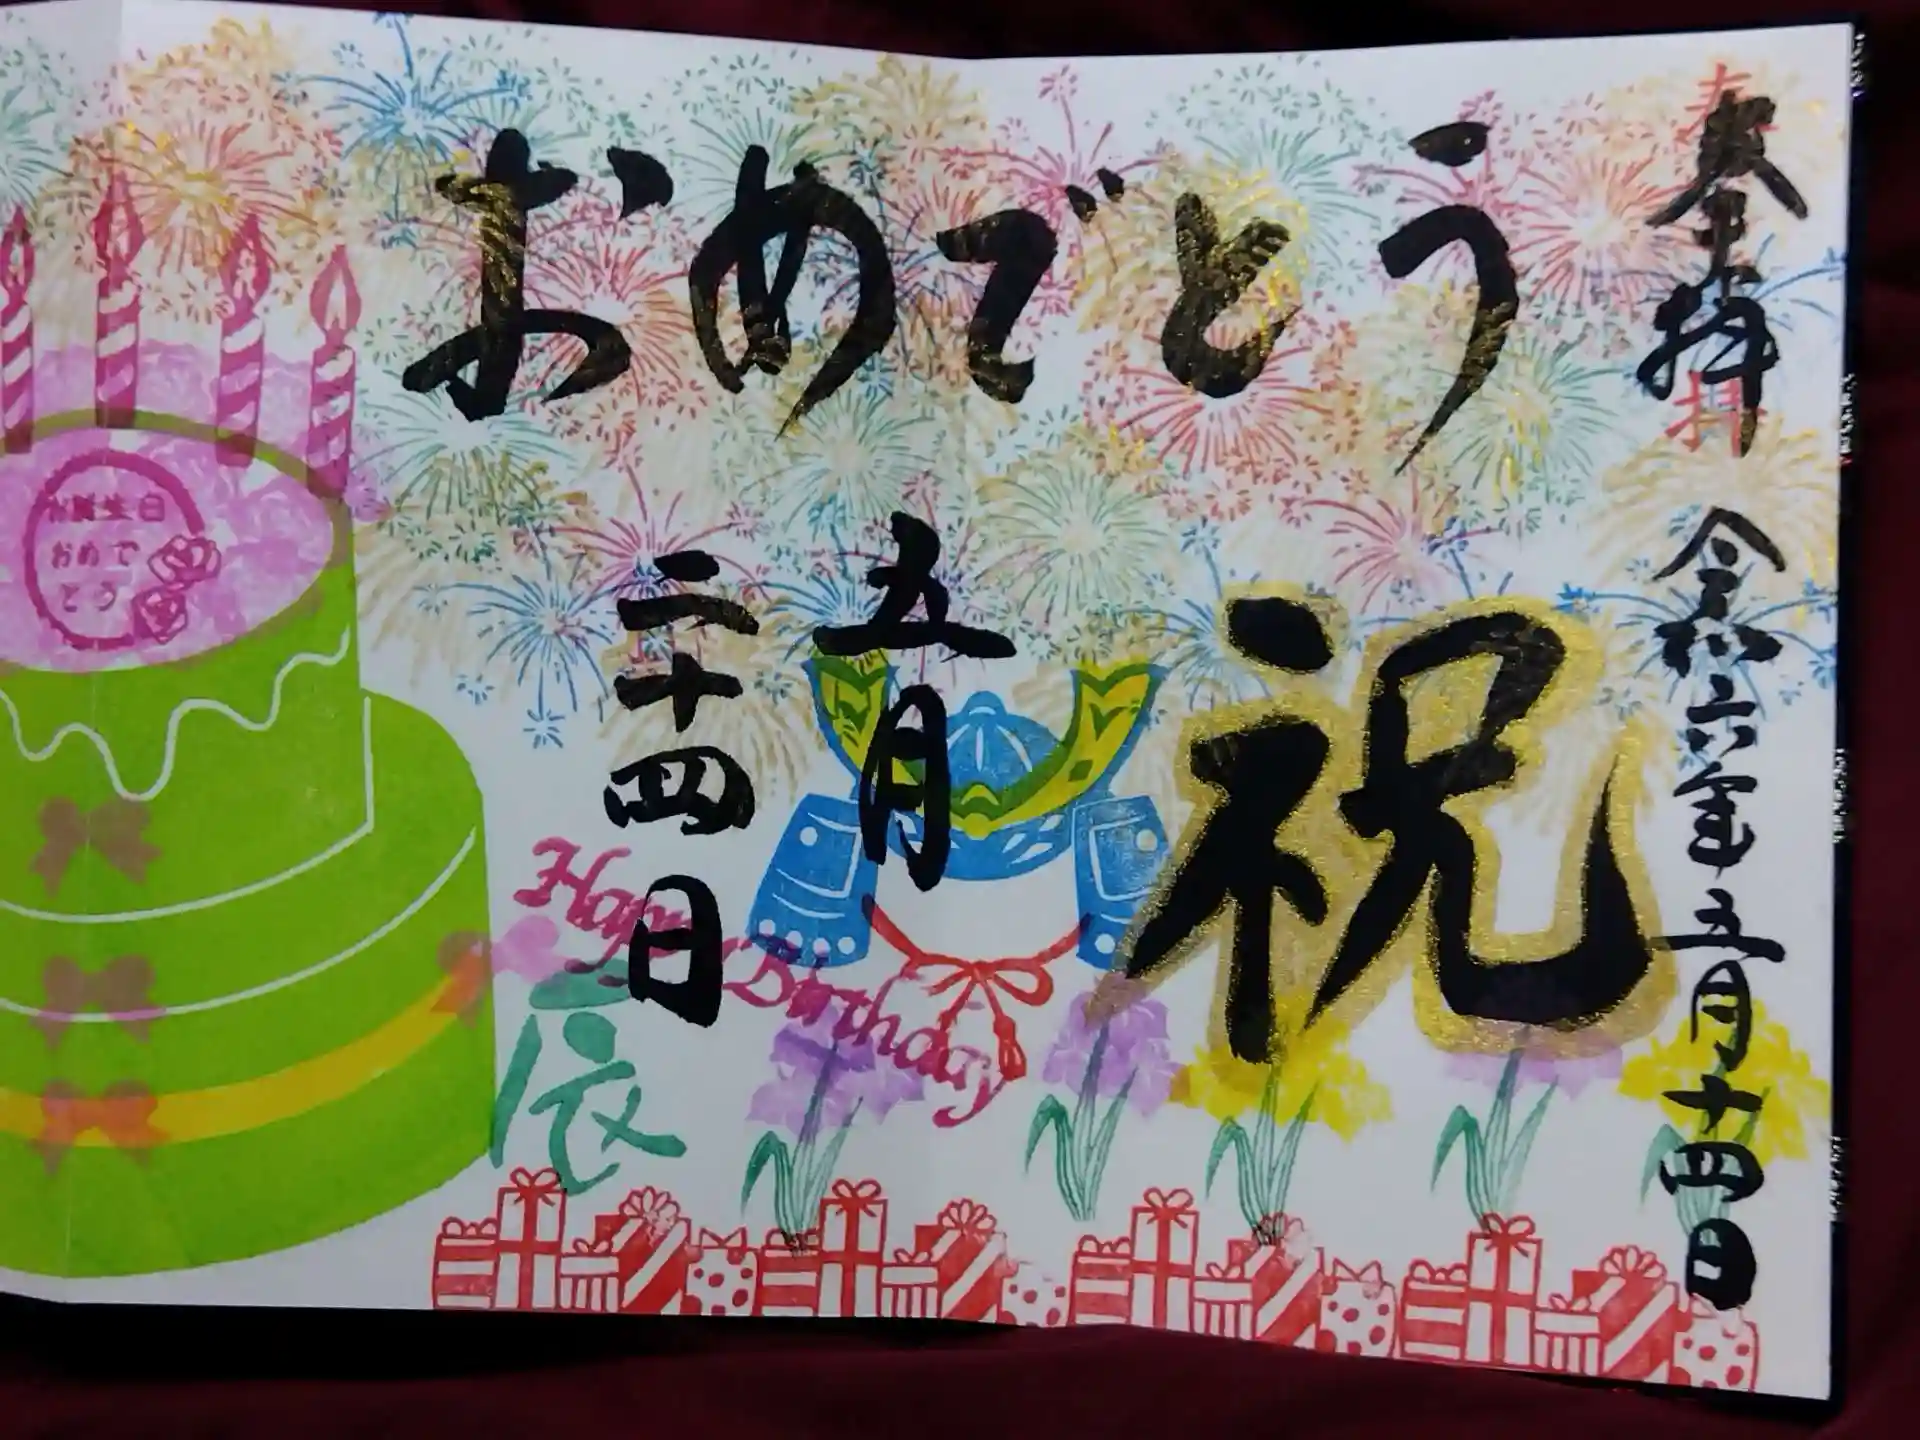 奉拝
令和六年五月十四日
おめでとう
祝
五月
二十四日
Happy Birthday
辰
お誕生日
おめで
とう
奉拝